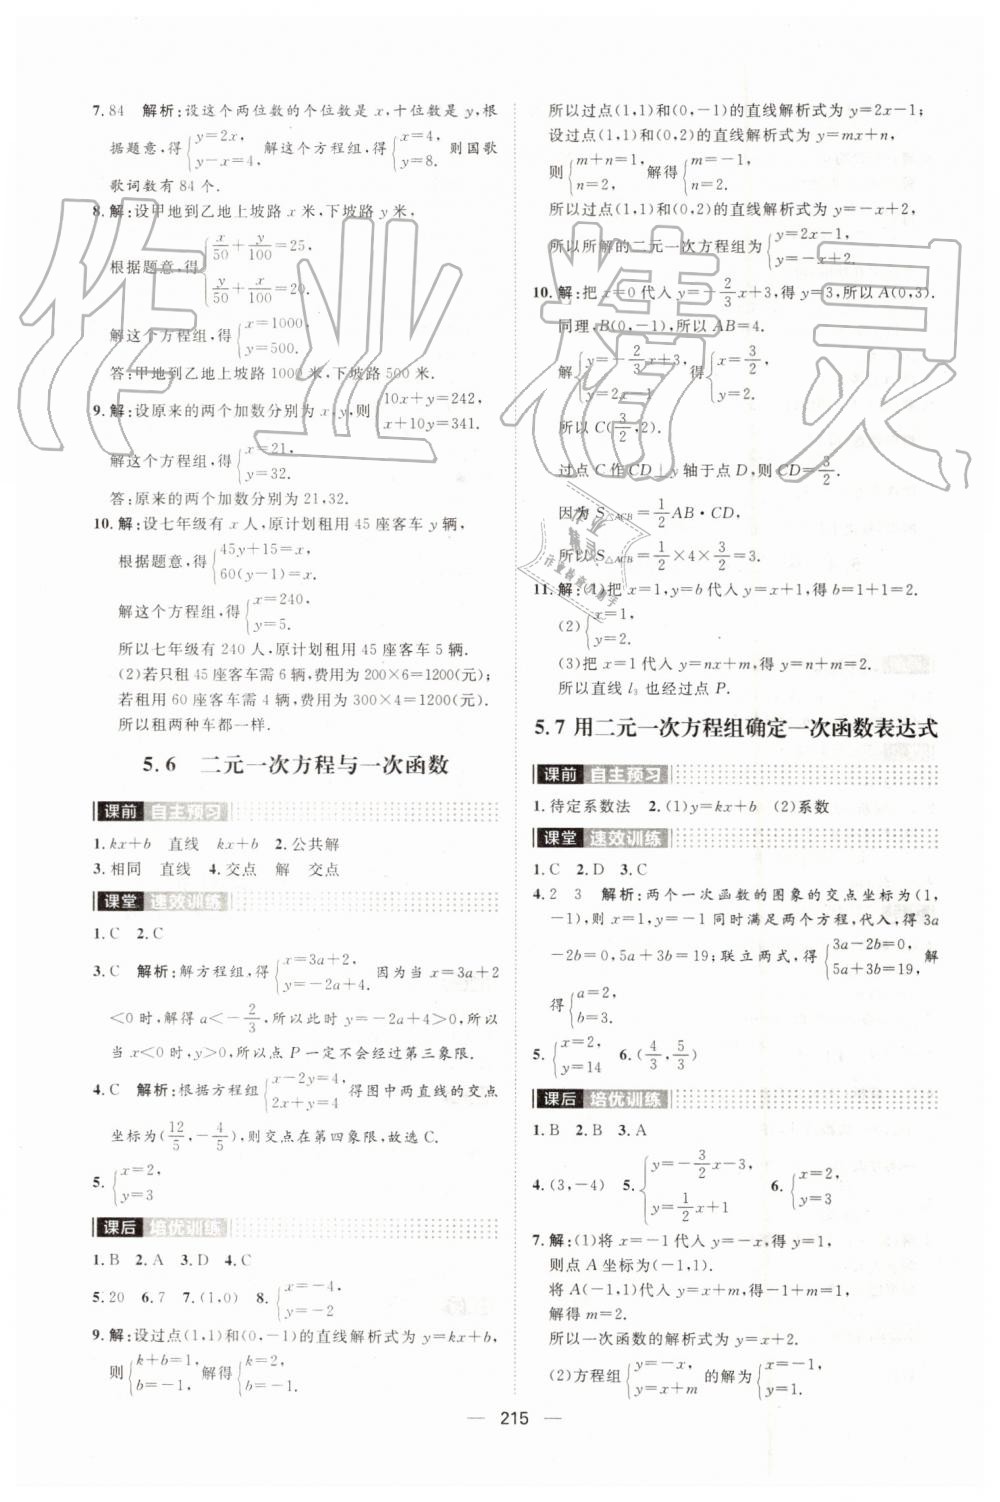 7. 84 解析:设这个两位数的个位数是 x,十位数是 y,根
据题意,得{y=2x, y-x=4. 解这个方程组,得{x=4, y=8. 则国歌
歌词数有 84 个.
8. 解:设甲地到乙地上坡路 x 米,下坡路 y 米,
根据题意,得{x/50+y/100=25, y/50+x/100=20.
解这个方程组,得{x=1000, y=500.
答:甲地到乙地上坡路 1000 米,下坡路 500 米.
9. 解:设原来的两个加数分别为 x,y,则{10x+y=242, x+10y=341.
解这个方程组,得{x=21, y=32.
答:原来的两个加数分别为 21,32.
10. 解:设七年级有 x 人,原计划租用 45 座客车 y 辆,
根据题意,得{45y+15=x, 60(y-1)=x.
解这个方程组,得{x=240, y=5.
所以七年级有 240 人,原计划租用 45 座客车 5 辆.
(2)若只租 45 座客车需 6 辆,费用为 200×6=1200(元);
若租用 60 座客车需 4 辆,费用为 300×4=1200(元).
所以租两种车都一样.
5.6 二元一次方程与一次函数
课前 自主预习
1. kx+b 直线 kx+b 2. 公共解
3. 相同 直线 4. 交点 解 交点
课堂 速效训练
1. C 2. C
3. C 解析:解方程组,得{x=3a+2, y=-2a+4. 因为当 x=3a+2
<0 时,解得 a<-2/3,所以此时 y=-2a+4>0,所以
当 x<0 时,y>0,所以点 P 一定不会经过第三象限.
4. C 解析:根据方程组{x-2y=4, 2x+y=4 得图中两直线的交点
坐标为(12/5,-4/5),则交点在第四象限,故选 C.
5. {x=2, y=3
课后 培优训练
1. B 2. A 3. D 4. C
5. 20 6. 7 7. (1,0) 8. {x=-4, y=-2
9. 解:设过点(1,1)和(0,-1)的直线解析式为 y=kx+b,
则{k+b=1, b=-1. 解得{k=2, b=-1.
所以过点(1,1)和(0,-1)的直线解析式为 y=2x-1;
设过点(1,1)和(0,2)的直线解析式为 y=mx+n,
则{m+n=1, n=2. 解得{m=-1, n=2.
所以过点(1,1)和(0,2)的直线解析式为 y=-x+2,
所以所解的二元一次方程组为{y=2x-1, y=-x+2.
10. 解:把 x=0 代入 y=-2/3x+3,得 y=3,所以 A(0,3).
同理,B(0,-1),所以 AB=4.
解{y=-2/3x+3, y=2x-1 得{x=3/2, y=2.
所以 C(3/2,2).
过点 C 作 CD⊥y 轴于点 D,则 CD=3/2.
因为 S△ACB=1/2AB·CD,
所以 S△ACB=1/2×4×3/2=3.
11. 解:(1)把 x=1,y=b 代入 y=x+1,得 b=1+1=2.
(2){x=1, y=2.
(3)把 x=1 代入 y=nx+m,得 y=n+m=2.
所以直线 l₃ 也经过点 P.
5.7 用二元一次方程组确定一次函数表达式
课前 自主预习
1. 待定系数法 2. (1)y=kx+b (2)系数
课堂 速效训练
1. C 2. D 3. C
4. 2 3 解析:两个一次函数的图象的交点坐标为(1,
-1),则 x=1,y=-1 同时满足两个方程,代入,得 3a
-2b=0,5a+3b=19;联立两式,得{3a-2b=0, 5a+3b=19, 解
得{a=2, b=3.
5. {x=2, y=14 6. (4/3,5/3)
课后 培优训练
1. B 2. B 3. A
4. (3,-4) 5. {y=-3/2x-3, y=1/2x+1 6. {x=2, y=3
7. 解:(1)将 x=-1 代入 y=-x,得 y=1,
则点 A 坐标为(-1,1).
将 A(-1,1)代入 y=x+m,得-1+m=1,
解得 m=2.
所以一次函数的解析式为 y=x+2.
(2)方程组{y=-x, y=x+m 的解为{x=-1, y=1.
— 215 —
作业精灵
作业
精灵